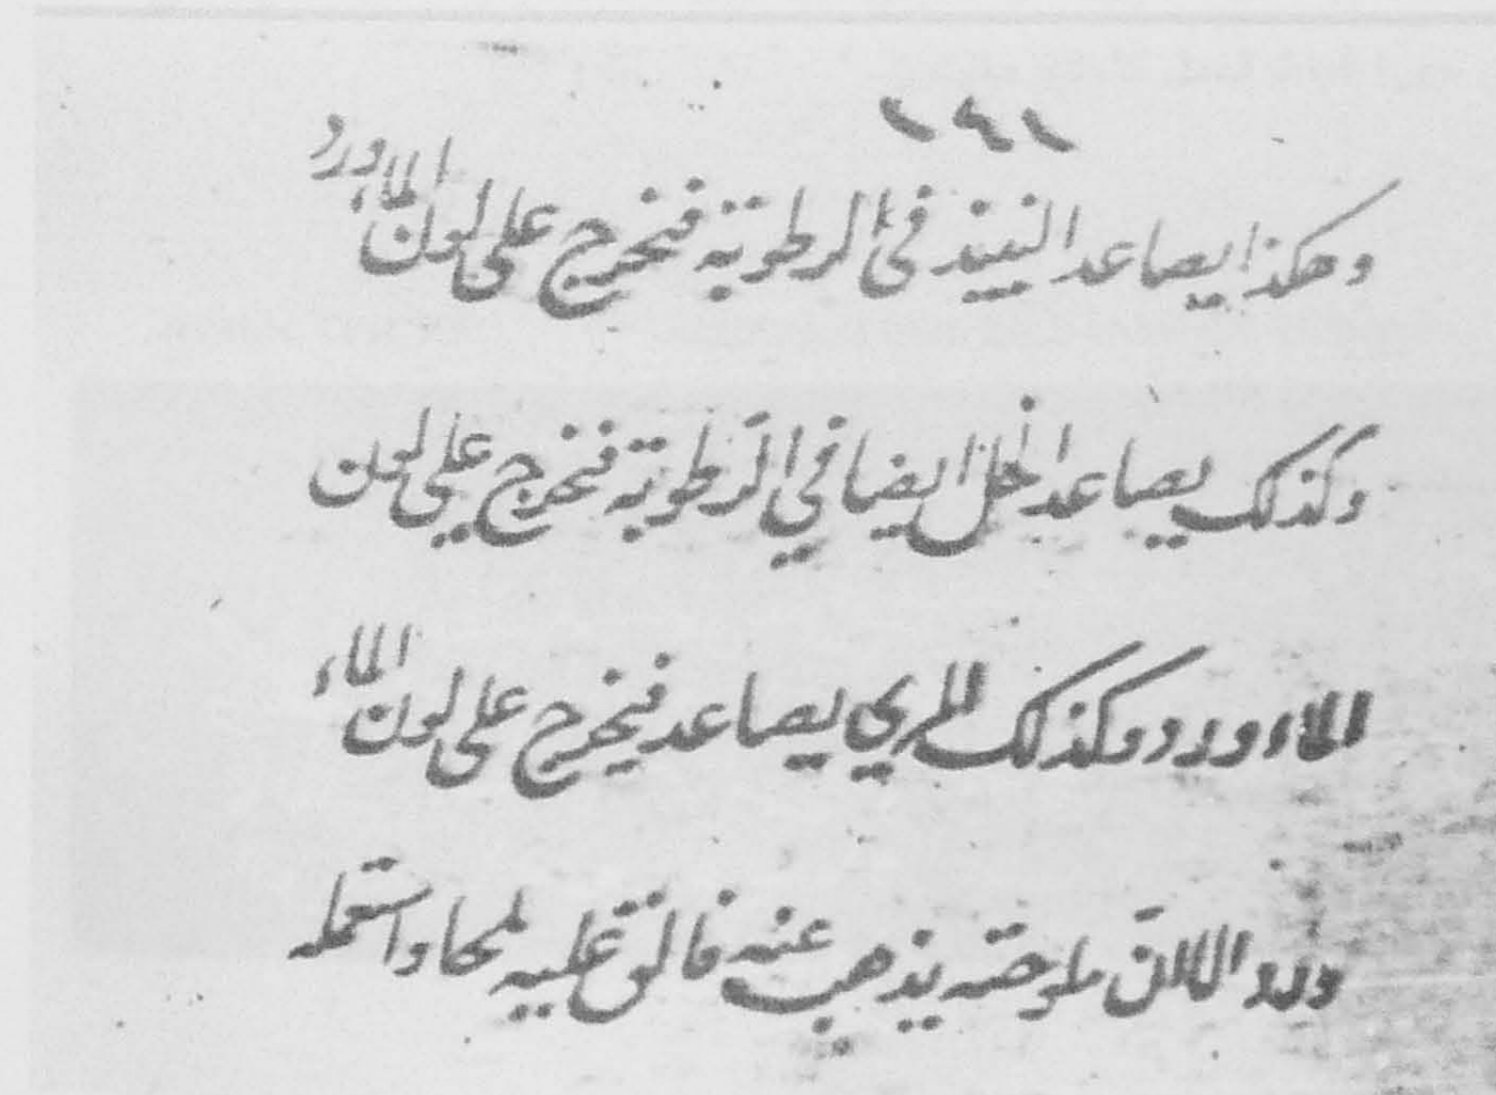 ١٤١
وهكذا يصاعد النبيذ في الرطوبة فتخرج على لون الماء ورد
وكذلك يصاعد الخل ايضا في الرطوبة فتخرج علي لون
الماء ورد وكذلك المري يصاعد فيخرج على لون الماء
ورد الا ان ملوحته يذهب عنه فالق عليه ملحا واستعمله